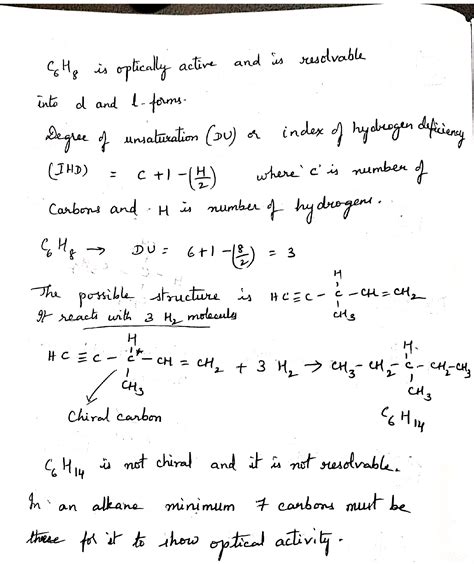 C6H8 is optically active and is resolvable
into d and l-forms.
Degree of unsaturation (DU) or index of hydrogen deficiency
(IHD) = C+1-(H/2) where 'C' is number of
Carbons and H is number of hydrogens.
C6H8 → DU = 6+1-(8/2) = 3
H
The possible structure is HC≡C-C-CH=CH2
It reacts with 3 H2 molecules CH3
H H
HC≡C-C*-CH=CH2 + 3 H2 → CH3-CH2-C-CH2-CH3
CH3 CH3
Chiral carbon C6H14
C6H14 is not chiral and it is not resolvable.
In an alkane minimum 7 carbons must be
there for it to show optical activity.